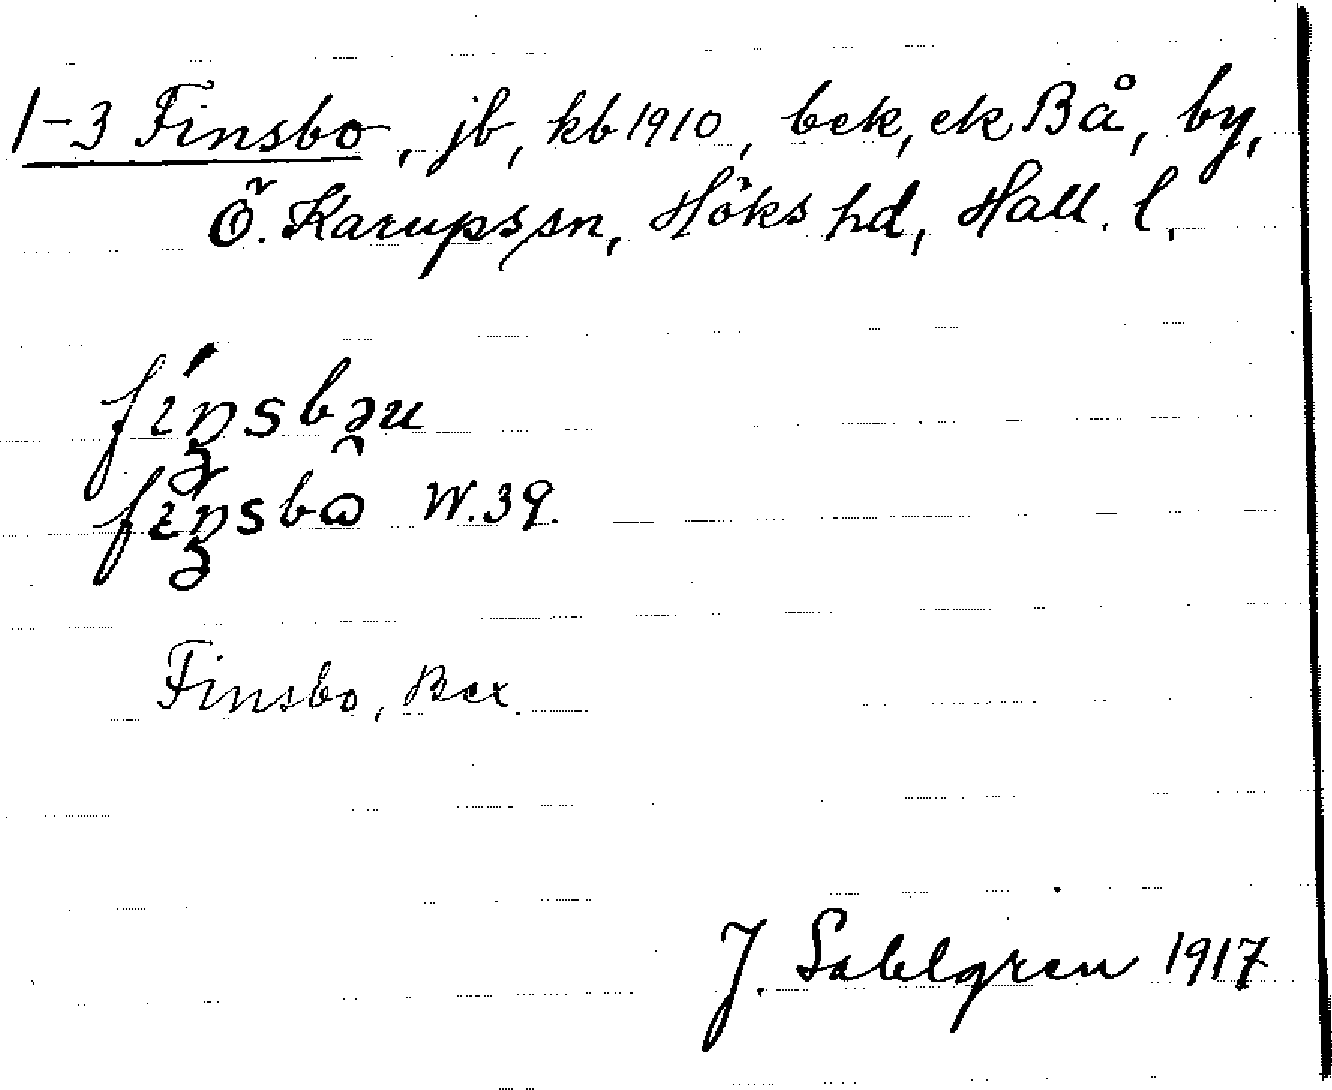 1-3 Finsbo, jb, kb 1910, bek, ek Bå, by,
Ö. Karups sn, Höks hd, Hall. l.
W. 39.
Finsbo, Bex
J. Sahlgren 1917